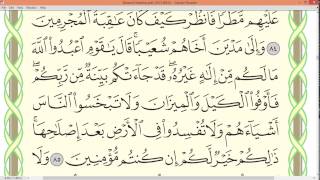 عَلَيْهِم مَّطَرًا فَانظُرْ كَيْفَ كَانَ عَاقِبَةُ الْمُجْرِمِينَ
٨٤ وَإِلَىٰ مَدْيَنَ أَخَاهُمْ شُعَيْبًا قَالَ يَاقَوْمِ اعْبُدُوا اللَّهَ
مَا لَكُم مِّنْ إِلَٰهٍ غَيْرُهُ قَدْ جَاءَتْكُم بَيِّنَةٌ مِّن رَّبِّكُمْ
فَأَوْفُوا الْكَيْلَ وَالْمِيزَانَ وَلَا تَبْخَسُوا النَّاسَ
أَشْيَاءَهُمْ وَلَا تُفْسِدُوا فِي الْأَرْضِ بَعْدَ إِصْلَاحِهَا
ذَٰلِكُمْ خَيْرٌ لَّكُمْ إِن كُنتُم مُّؤْمِنِينَ ٨٥ وَلَا